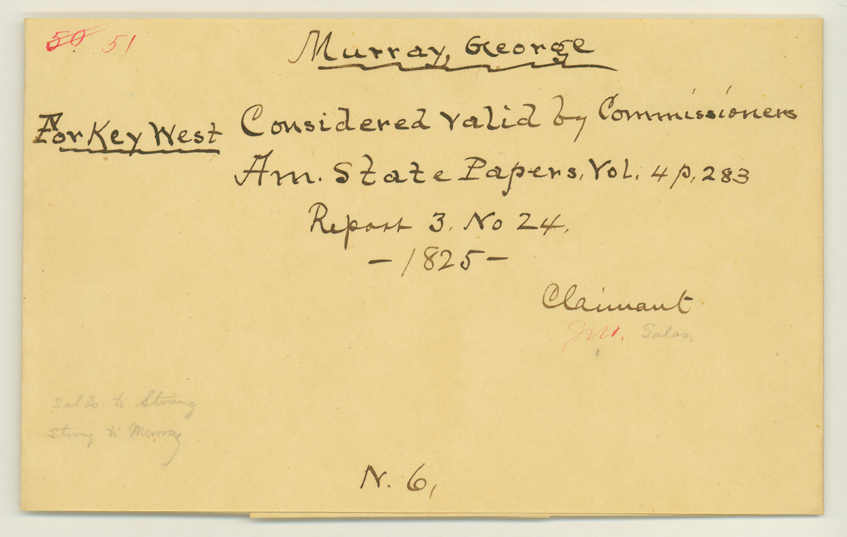 50 51
Murray, George
For Key West Considered valid by Commissioners
Am. State Papers, Vol. 4 p. 283
Report 3. No 24.
- 1825 -
Claimant
Salas
Salas to Strong
Strong to Murray
N. 6,